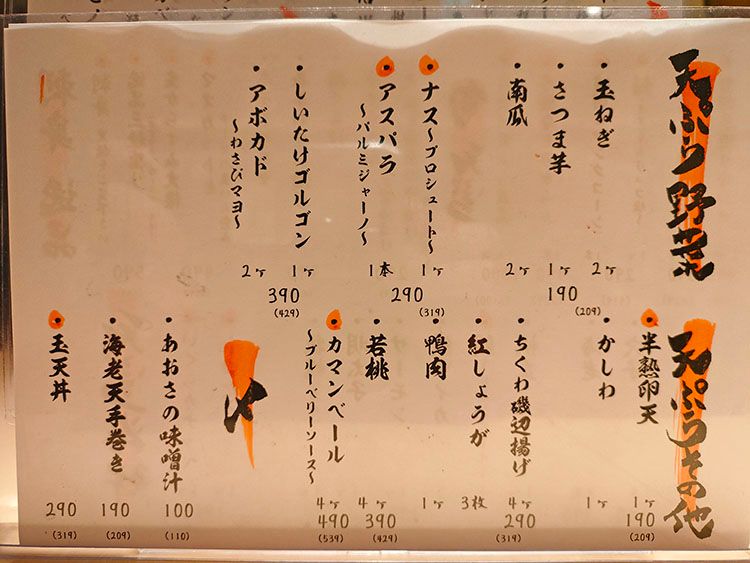 天ぷら野菜
・玉ねぎ 2ヶ
・さつま芋 1ヶ
・南瓜 2ヶ
190
(209)
・ナス〜プロシュート〜 1ヶ
・アスパラ
〜パルミジャーノ〜 1本
290
(319)
・しいたけゴルゴン 1ヶ
・アボカド
〜わさびマヨ〜 2ヶ
390
(429)
天ぷらその他
・半熟卵天 1ヶ
・かしわ 1ヶ
190
(209)
・ちくわ磯辺揚げ 4ヶ
・紅しょうが 3枚
・鴨肉 1ヶ
290
(319)
・若桃 4ヶ
390
(429)
・カマンベール
〜ブルーベリーソース〜 4ヶ
490
(539)
・あおさの味噌汁
100
(110)
・海老天手巻き
190
(209)
・玉天丼
290
(319)